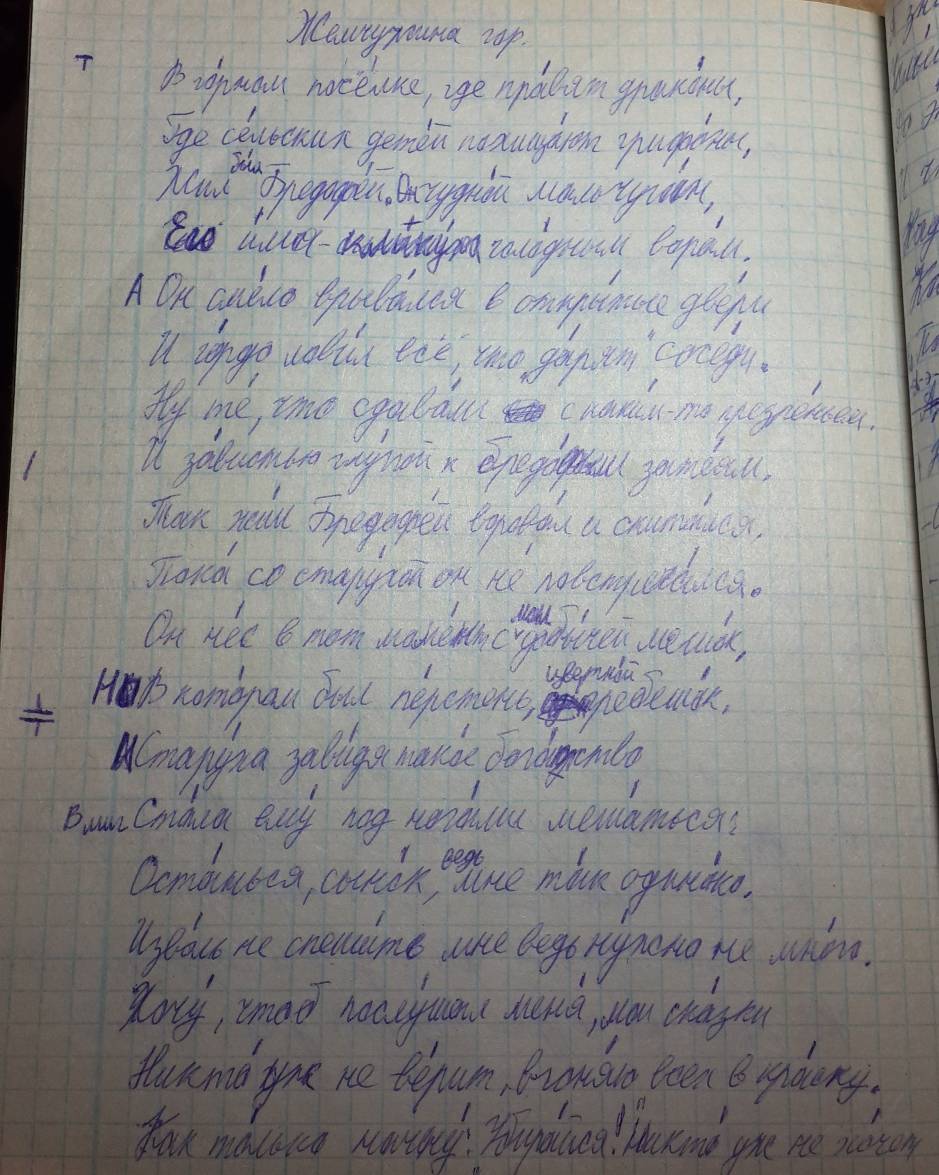 Жемчужина гор.
Т
В горном посёлке, где правят драконы,
Где сельских детей похищают грифоны,
Жил был Бредофей. Он чудной мальчуган,
Его имя - кликуха голодным ворам.
А Он смело врывался в открытые двери
И гордо ловил всё, что "дарят" соседи.
Ну те, что сдавали с каким-то презреньем.
И завистью глупой к затеям.
Так жил Бредофей воровал и скитался.
Пока со старухой он не повстречался.
Он нёс в тот момент с мал добычей мешок,
Но В котором был перстень, цветной гребешок.
И Старуха завидя такое богатство
В миг Стала ему под ногами мешаться:
Останься, сынок, ведь мне так одиноко.
Изволь не спешить мне ведь нужно не много.
Хочу, чтоб послушал меня, мои сказки
Никто уж не верит, вгоняю всех в краску.
Как только начну: "Убирайся!" Никто уж не хочет